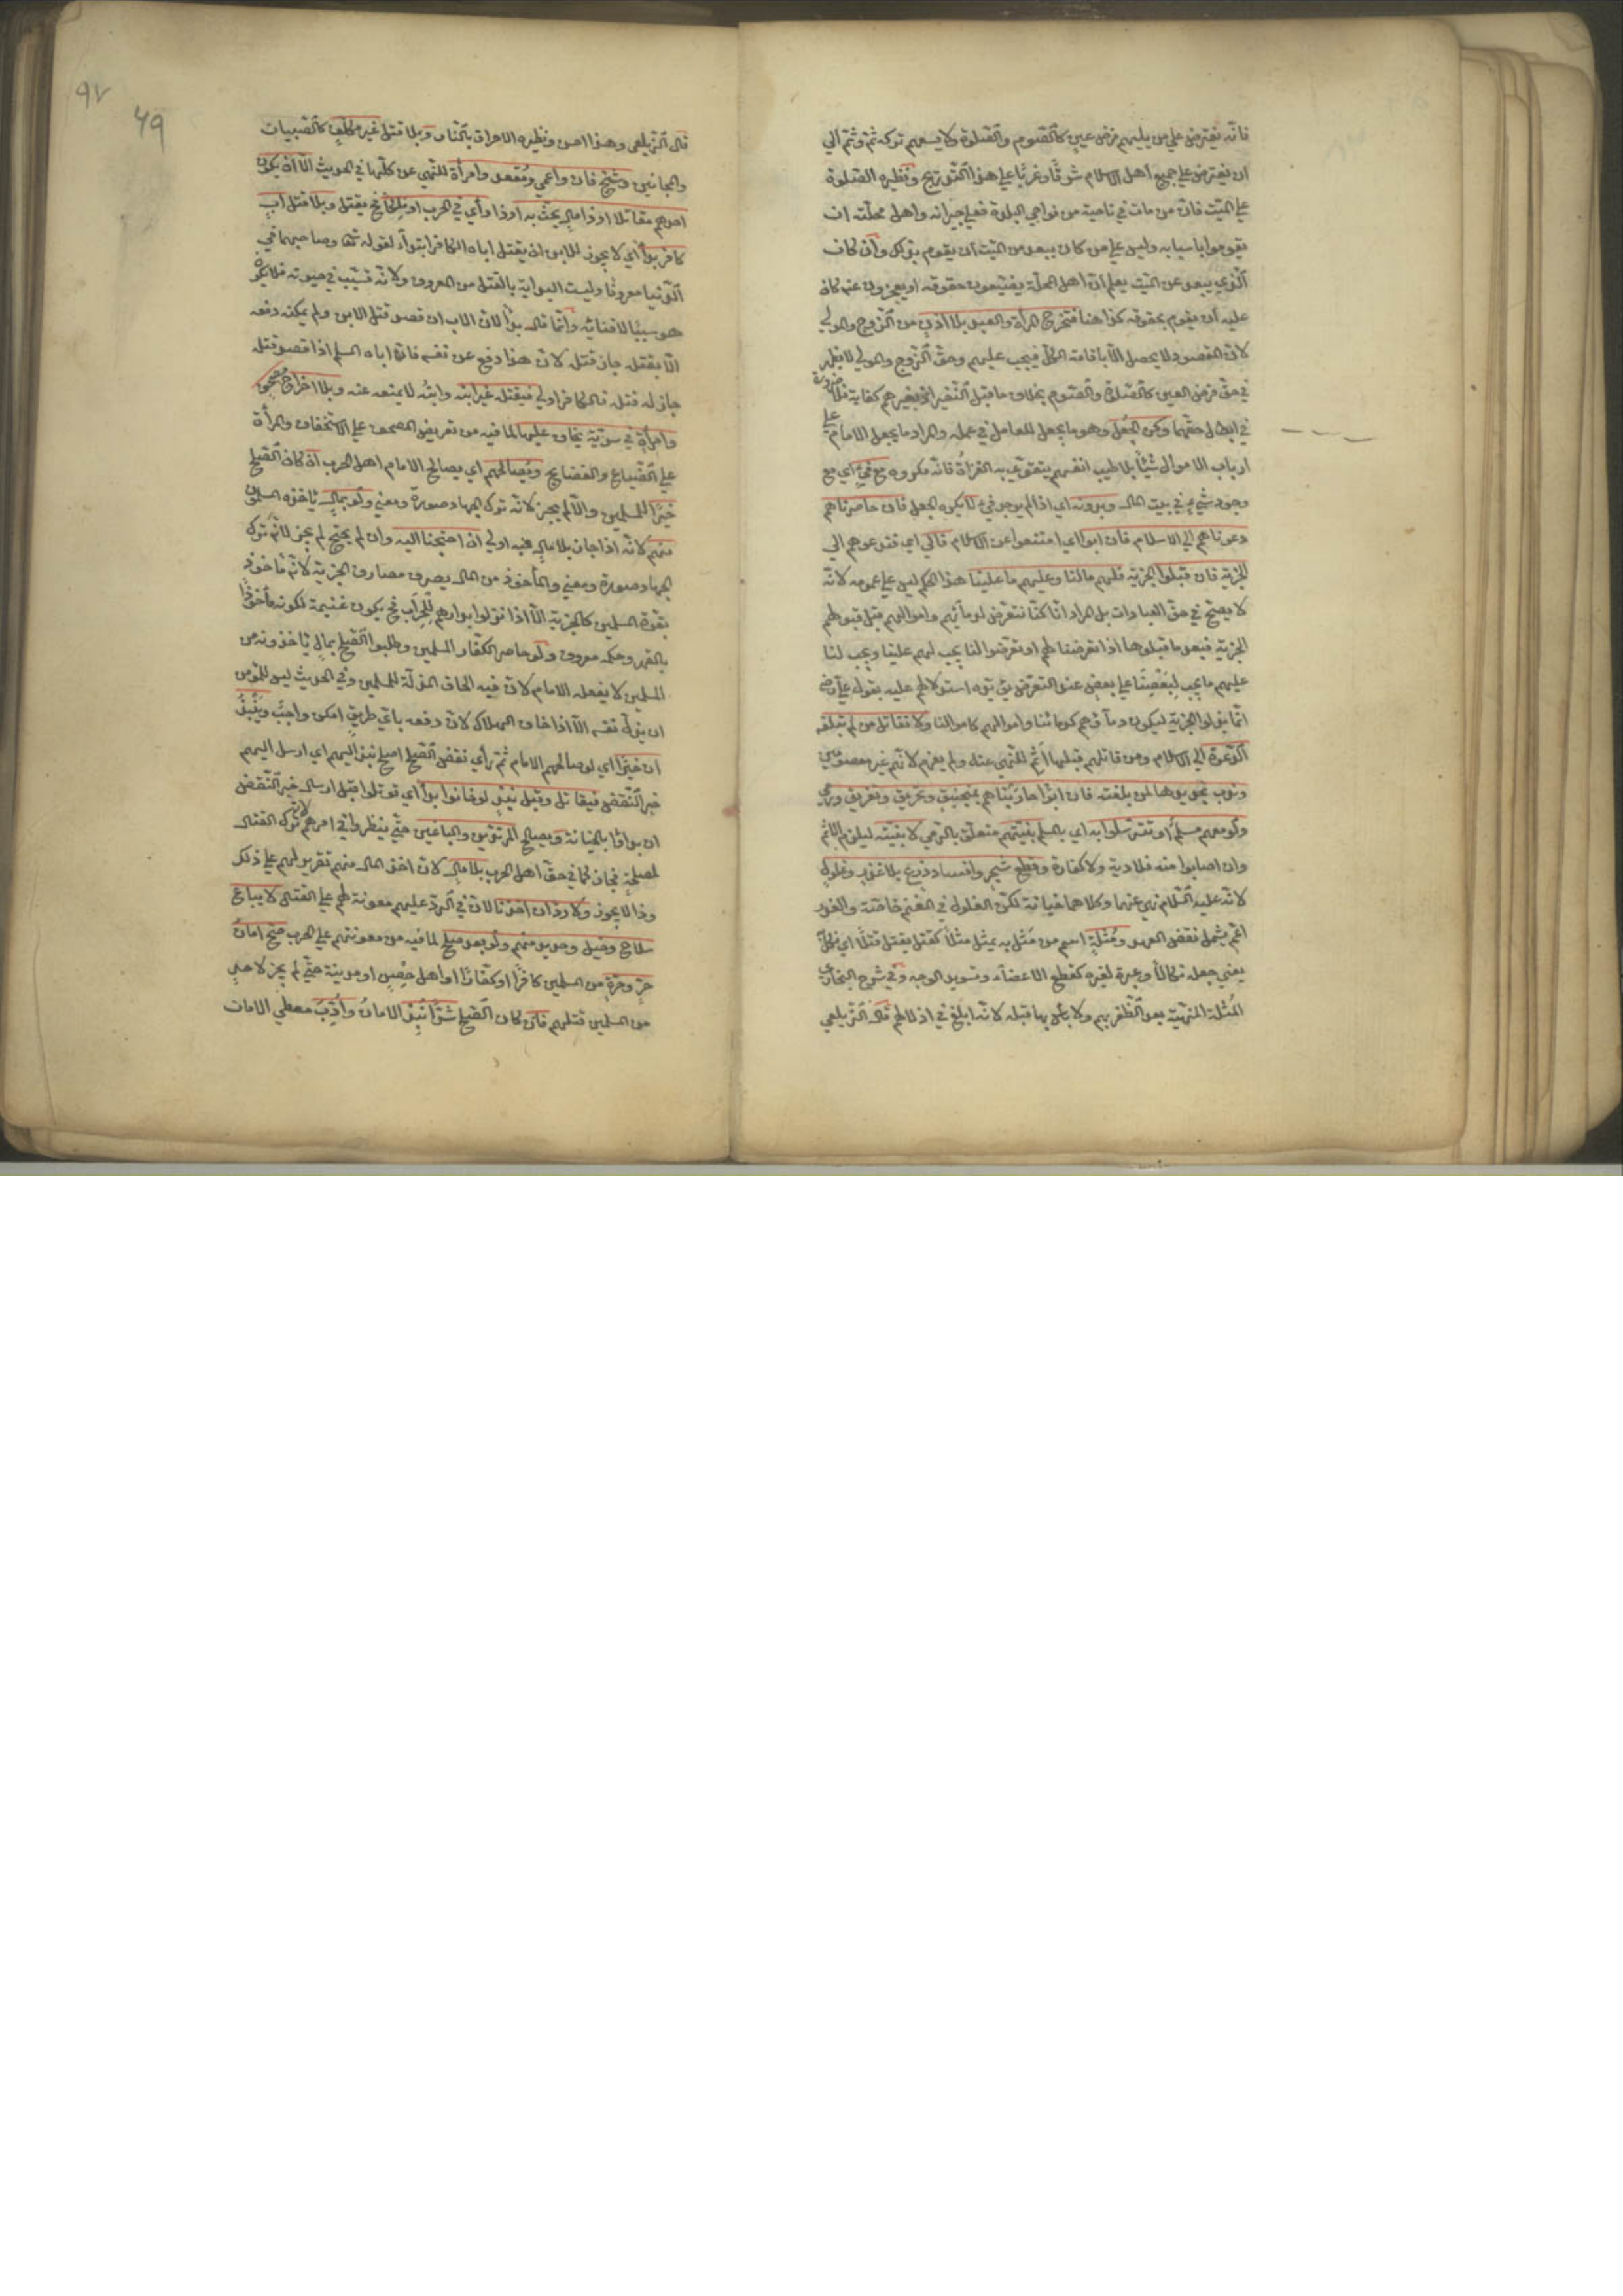 فانّه يفترض علي من يليهم فرض عين كالصّوم والصّلوة ولا يسعهم تركه ثمّ وثمّ الي
ان يفترض علي جميع اهل الاسلام شرقًا وغربًا علي هذا التّدريج ونظيره الصّلوة
علي الميّت فانّ من مات في ناحية من نواحي البلدة فعلي جيرانه واهل محلّته ان
يقوموا باسبابه وليس علي من كان يبعد من الميّت ان يقوم بذلك وان كان
الّذي يبعد عن الميّت يعلم انّ اهل المحلّة يضيّعون حقوقه او يعجزون عنه كان
عليه ان يقوم بحقوقه كذا هنا فتخرج المرأة والعبد بلا اذن من الزّوج والمولي
لانّ المقصود لا يحصل الّا باقامة الكلّ فيجب عليهم وحقّ الزّوج والمولي لا يظهر
في حقّ فرض العين كالصّلوة والصّوم بخلاف ما قبل النّفير اذ بغيرهم كفاية فلا ضرورة
في ابطال حقّهما وكره الجُعل وهو ما يجعل للعامل في عمله والمراد ما يجعل الامام علي
ارباب الاموال شيئًا بلا طيب انفسهم يتقوّي به الغزاة فانّه مكروه مع فيءٍ اي مع
وجود شيءٍ في بيت المال وبدونه اي اذا لم يوجد فيء لا يكره الجعل فان حاصرناهم
دعوناهم الي الاسلام فان ابوا اي امتنعوا عن الاسلام فالي اي فندعوهم الي
الجزية فان قبلوا الجزية فلهم ما لنا وعليهم ما علينا هذا الحكم ليس علي عمومه لانّه
لا يصحّ في حقّ العبادات بل المراد انّا كنّا نتعرّض لدمائهم واموالهم قبل قبولهم
الجزية فبعد ما قبلوها اذا تعرضنا لهم او تعرّضوا لنا يجب لهم علينا ويجب لنا
عليهم ما يجب لبعضنا علي بعض عند التعرّض يؤيّده استدلالهم عليه بقول علي رض
انّما بذلوا الجزية ليكون دماؤهم كدمائنا واموالهم كاموالنا ولا نقاتل من لم تبلغه
الدّعوة الي الاسلام ومن قاتلهم قبلها اثم للنّهي عنه ولم يغرم لانّهم غير معصومين
وندب تجديدها لمن بلغته فان ابوا حاربناهم بمنجنيق وتحريق وتغريق ورمي
ولو معهم مسلم او تترّسلوا به اي بالمسلم بنيّتهم متعلّق بالرّمي لا بنيّته ليلزم الاثم
وان اصابوا منه فلا دية ولا كفارة وقطع شجر وافساد زرع بلا غدر وغلول
لانّه عليه السّلام نهي عنهما وكلاهما خيانة لكنّ الغلول في المغنم خاصّة والغدر
اعمّ يشمل نقض العهد ومُثلةٍ اسم من مَثل به يمثل مثلًا كقتل يقتل قتلًا اي نكّل
يعني جعله نكالًا وعبرة لغيره كقطع الاعضاء وتسويد الوجه وفي شرح البخاري
المُثلة المنهيّة بعد الظّفر بهم ولا بأس بها قبله لانّه ابلغ في اذلالهم قال الزّيلعي
٩٧
٤٩
قال الزّيلعي وهذا احسن ونظيره الاحراق بالنّار وبلا قتل غير مكلّف كالصّبيان
والمجانين وشيخ فان واعمي ومُقعد وامرأة للنّهي عن كلّها في الحديث الّا ان يكون
احدهم مقاتلا او ذا مال يحثّ به او ذا رأي في الحرب او ملكا فح يقتل وبلا قتل اب
كافر بدأ اي لا يجوز للابن ان يقتل اباه الكافر ابتداءً لقوله تعا وصاحبهما في
الدّنيا معروفًا وليست البداية بالقتل من المعروف ولانّه تسبّب في حيوته فلا يكون
هو سببًا لافنائه وانّما قال بدأً لانّ الاب ان قصد قتل الابن ولم يمكنه دفعه
الّا بقتله جاز قتله لانّ هذا دفع عن نفسه فانّ اباه المسلم اذا قصد قتله
جاز له قتله فالكافر اولي فيقتله غير ابنه وابنُه لا يمنعه عنه وبلا اخراج مصحف
وامرأة في سريّة يخاف عليها لما فيه من تعريض المصحف علي الاستخفاف والمرأة
علي الضّياع والفضايح ويُصالحهم اي يصالح الامام اهل الحرب ان كان الصّلح
خيرًا للمسلمين والّا لم يجز لانّه ترك الجهاد صورةً ومعني ولو بمال يأخذه المسلمون
منهم لانّه اذا جاز بلا مال فبه اولي ان احتجنا اليه وان لم يحتج لم يجز لانّه ترك
الجهاد صورة ومعني والمأخوذ من المال يصرف مصارف الجزية لانّه مأخوذ
بقوّة المسلمين كالجزية الّا اذا نزلوا بدارهم للحراب فح يكون غنيمة لكونه مأخوذًا
بالقهر وحكمه معروف ولو حاصر الكفّار المسلمين وطلبوا الصّلح بمال يأخذونه من
المسلمين لا يفعله الامام لانّ فيه الحاق المذلّة للمسلمين وفي الحديث ليس للمؤمن
ان يذلّ نفسه الّا اذا خاف الهلاك لانّ دفعه بايّ طريقٍ امكن واجبٌ ويَنْبِذُ
ان خيرًا اي لو صالحهم الامام ثمّ رأي نقض الصّلح اصلح نبذ اليهم اي ارسل اليهم
خبر النّقض فيقاتل وقبل نبذ لو خانوا بدأً اي قوتلوا قبل ارسال خبر النّقض
ان بدأوا بالخيانة ويصالح المرتدّين والباغين حتّي ينظروا في امرهم لانّه ترك القتال
لمصلحةٍ فجاز كما في حقّ اهل الحرب بلا مال لانّ اخذ المال منهم تقرير لهم علي ذلك
وذا لا يجوز ولا ردّ ان اخذنا لانّ في الردّ عليهم معونة لهم علي القتال لا يباع
سلاح وخيل وحديد منهم ولو بعد صلح لما فيه من معونتهم علي الحرب صحّ امان
حرّ وحرّة من المسلمين كافرًا او كفّارًا او اهل حِصْن او مدينة حتّي لم يجز لاحدٍ
من المسلمين قتلهم فان كان الصّلح شرًّا نُبِذَ الامانُ وأُدِّبَ معطي الامان